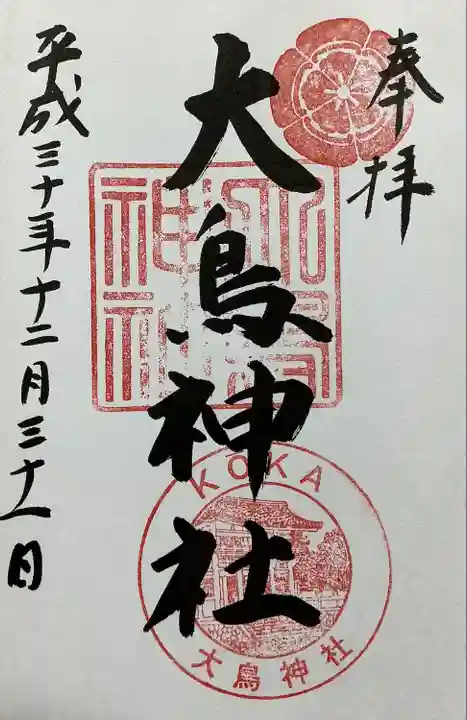 奉拝
大鳥神社
大鳥神社
KOKA
大鳥神社
平成三十年十二月三十一日